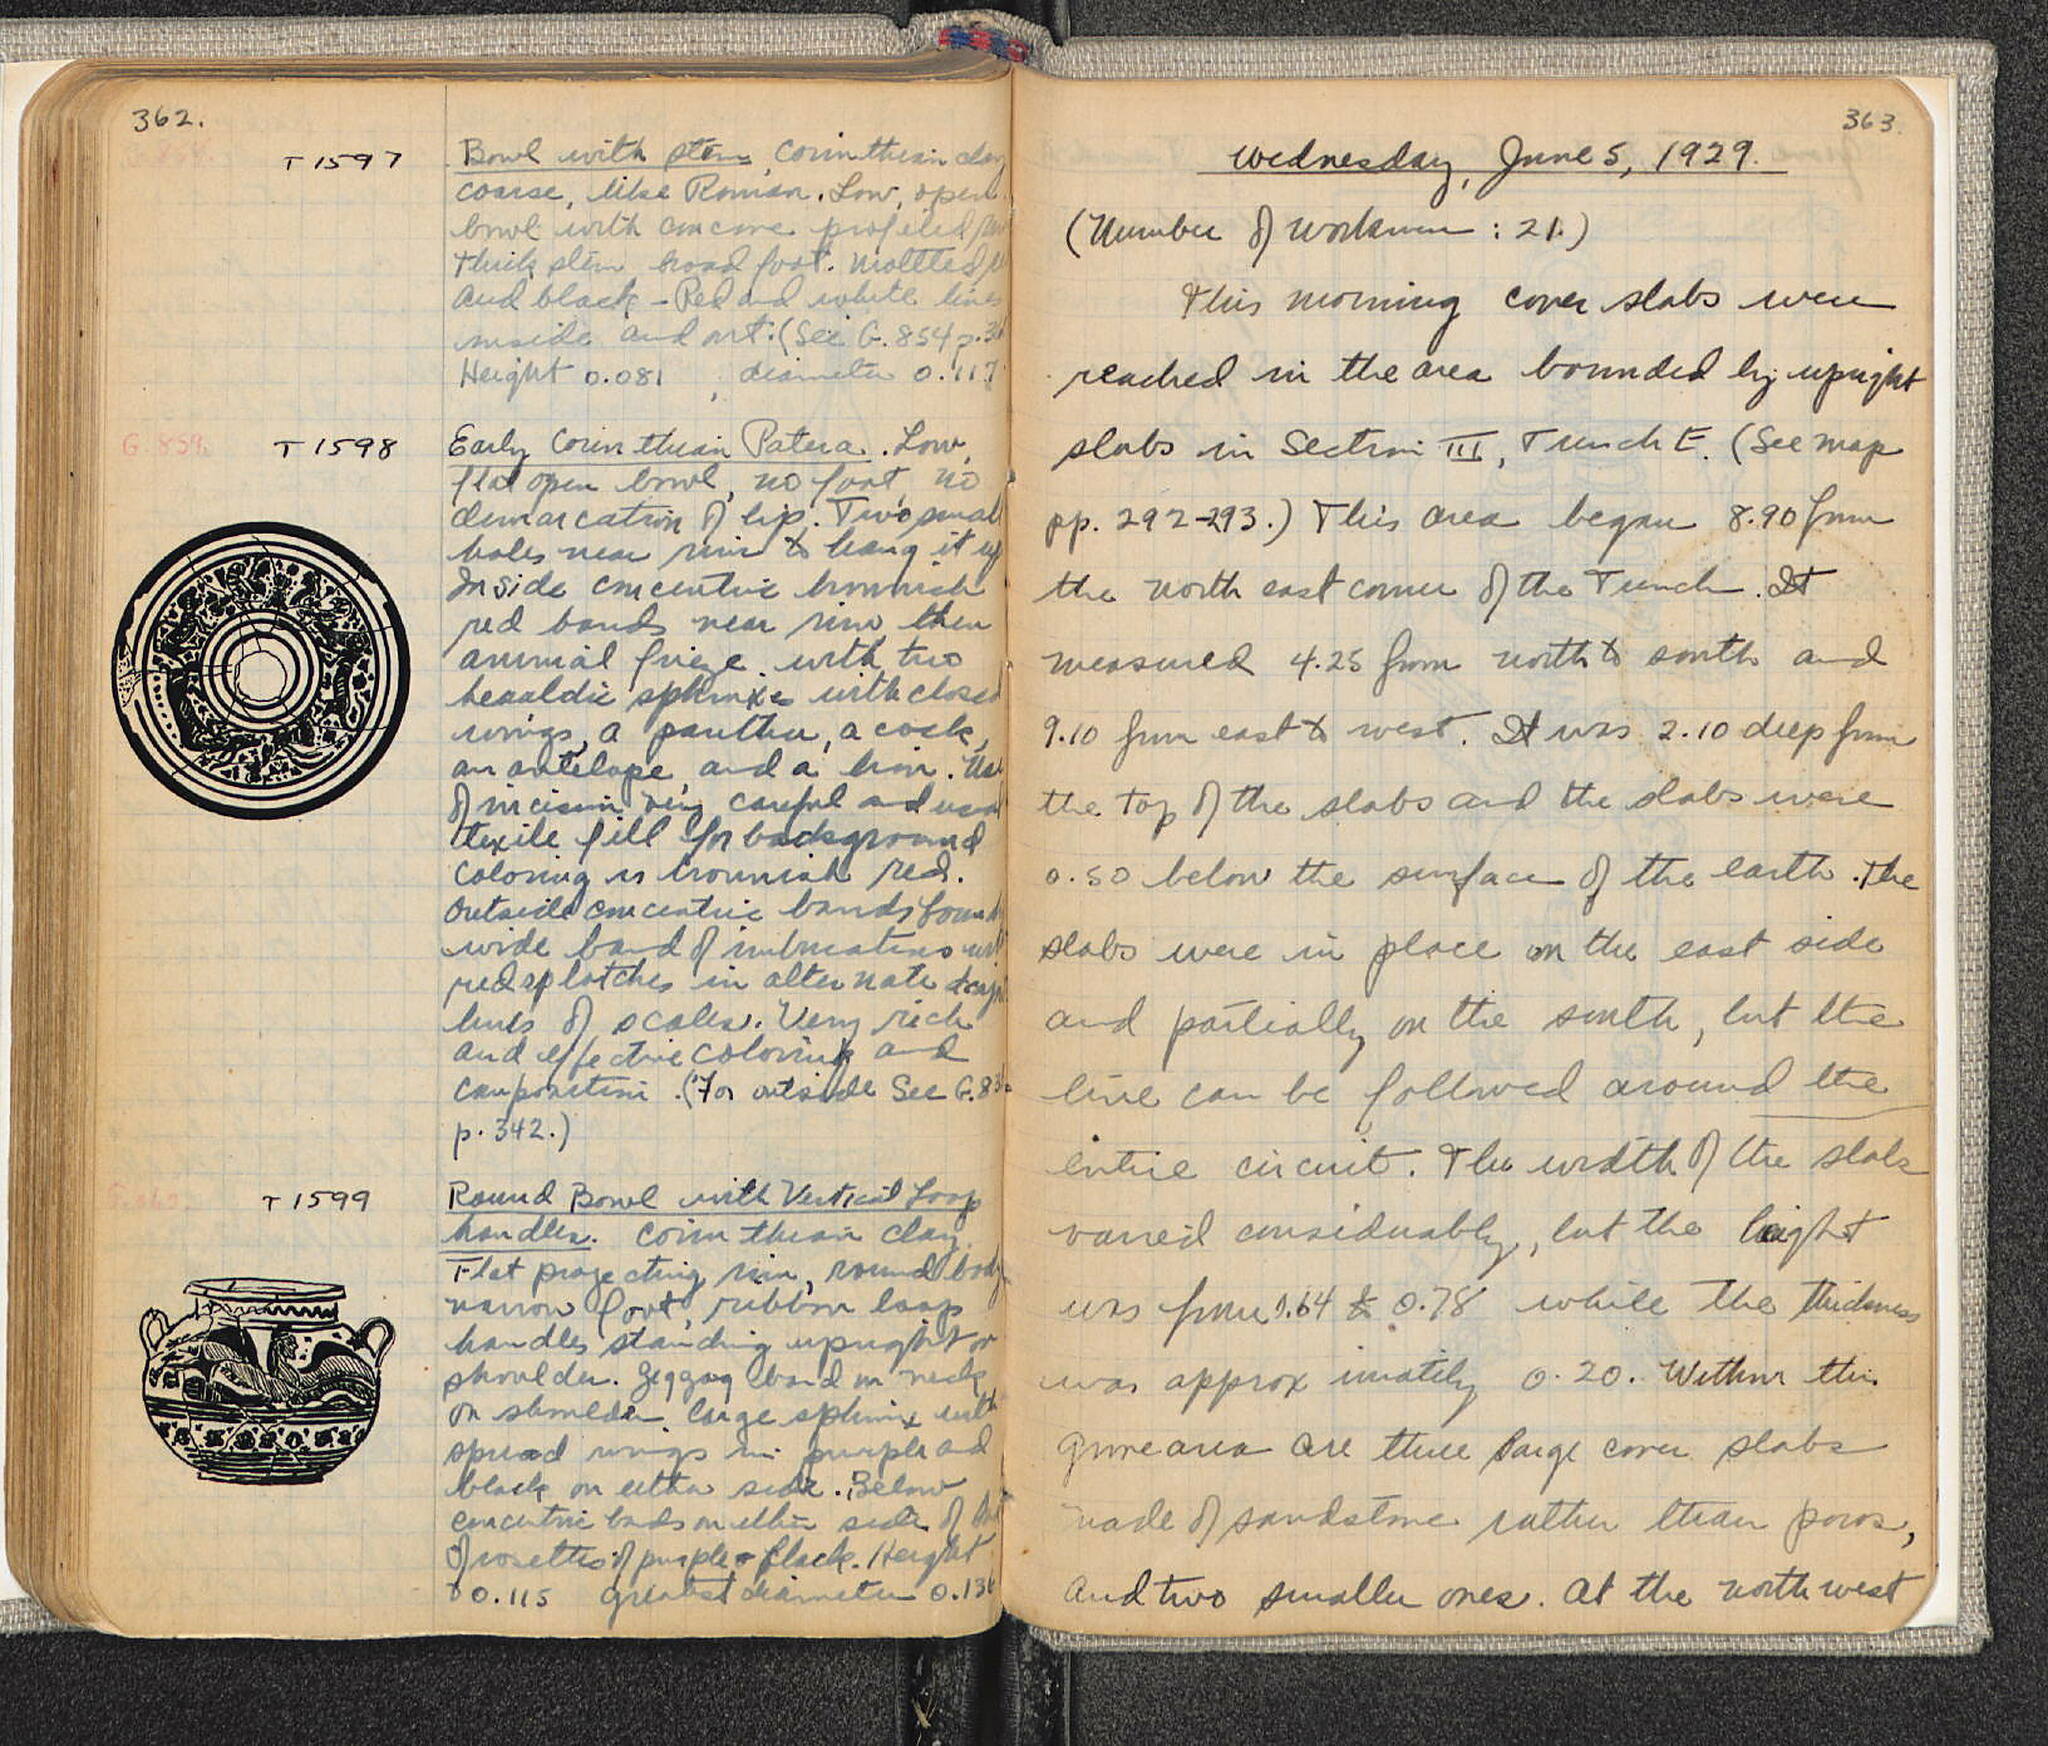 362.
T 1597
Bowl with stem, Corinthian clay
coarse, like Roman. Low, open
bowl with concave profiled
thick stem, broad foot. Mottled
and black - Red and white lines
inside and out. (See G. 854 p. 36
Height 0.081, diameter 0.117
G. 859.
T 1598
Early Corinthian Patera. Low,
flat open bowl, no foot, no
demarcation of lip. Two small
holes near rim to hang it up
Inside concentric brownish
red bands near rim, then
animal frieze with two
heraldic sphinxes with closed
wings, a panther, a cock,
an antelope and a lion. Use
of incision very careful and usual
textile fill for background
Coloring is brownish red.
Outside concentric bands
wide band of imbrications with
red splotches in alternate
lines of scales. Very rich
and effective coloring and
composition. (For outside See G. 83
p. 342.)
T 1599
Round Bowl with Vertical Loop
handles. Corinthian clay.
Flat projecting rim, round body
narrow foot, ribbon loop
handles standing upright on
shoulder. Zigzag band on neck
on shoulder large sphinx with
spread wings in purple and
black on either side. Below
concentric bands on either side of
of rosettes of purple & black. Height
0.115 greatest diameter 0.136
363.
Wednesday, June 5, 1929.
(Number of workmen : 21.)
This morning cover slabs were
reached in the area bounded by upright
slabs in Section III, Trench E. (See map
pp. 292-293.) This area began 8.90 from
the north east corner of the Trench. It
measured 4.25 from north to south and
9.10 from east to west. It was 2.10 deep from
the top of the slabs and the slabs were
0.50 below the surface of the earth. The
slabs were in place on the east side
and partially on the south, but the
line can be followed around the
entire circuit. The width of the slabs
varied considerably, but the height
was from 0.64 to 0.78 while the thickness
was approximately 0.20. Within this
grave area are three large cover slabs
made of sandstone rather than poros,
and two smaller ones. At the north west